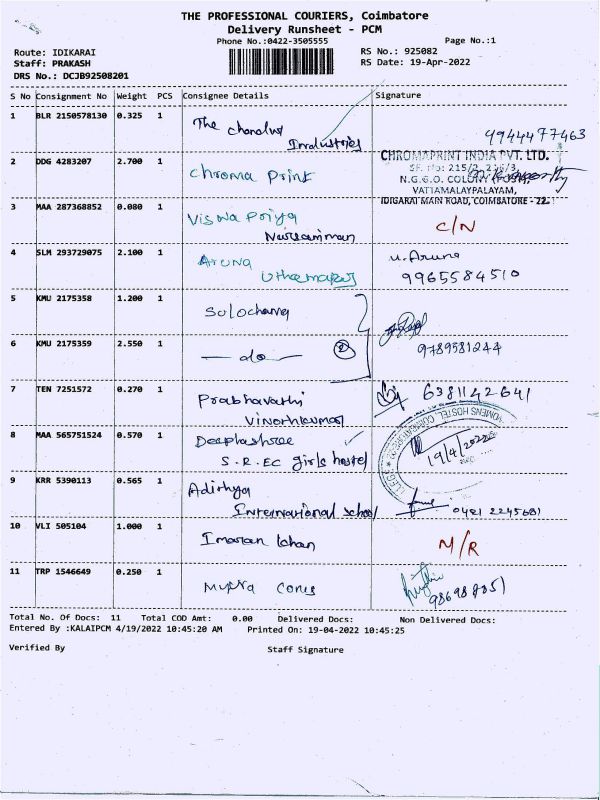 THE PROFESSIONAL COURIERS, Coimbatore
Delivery Runsheet - PCM
Phone No.:0422-3505555
Page No.:1
Route: IDIKARAI
RS No.: 925082
Staff: PRAKASH
RS Date: 19-Apr-2022
DRS No.: DCJB92508201
S No Consignment No Weight PCS Consignee Details Signature
1 BLR 2150578130 0.325 1 The chandus Industries 9944477463
2 DDG 4283207 2.700 1 Chroma Print
CHROMAPRINT INDIA PVT. LTD.
SF. No: 215/2, 216/3,
N.G.G.O. COLONY (POST),
VATTAMALAYPALAYAM,
IDIGARAI MAIN ROAD, COIMBATORE - 22.
3 MAA 287368852 0.080 1 Viswa Poiya C/N
4 SLM 293729075 2.100 1 Aruna Uthamaraj u. Aruna
9965584510
5 KMU 2175358 1.200 1 Sulochana
6 KMU 2175359 2.550 1 — do — 2 9789581244
7 TEN 7251572 0.270 1 Prabhavathi Vinothkumar 6381142641
8 MAA 565751524 0.570 1 Deepashree
S.R.EC girls hostel
WOMENS HOSTEL, COIMBATORE
19/4/2022
9 KRR 5390113 0.565 1 Adithya
International school 0421 2245681
10 VLI 505104 1.000 1 Imaran khan M/R
11 TRP 1546649 0.250 1
Total No. Of Docs: 11 Total COD Amt: 0.00 Delivered Docs: Non Delivered Docs:
Entered By :KALAIPCM 4/19/2022 10:45:20 AM Printed On: 19-04-2022 10:45:25
Verified By Staff Signature